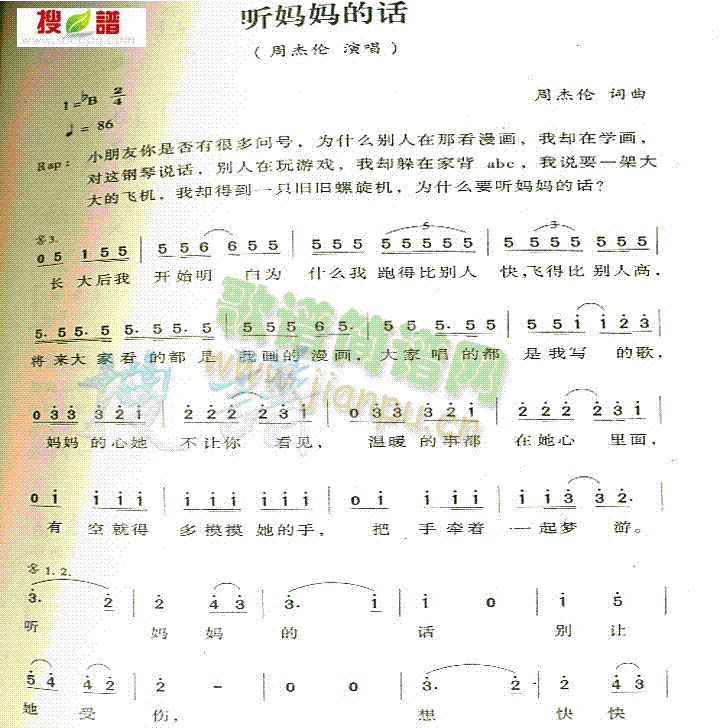 搜谱
www.sooopu.com
听妈妈的话
（周杰伦 演唱）
1=♭B 2/4
周杰伦 词曲
♩= 86
Rap: 小朋友你是否有很多问号，为什么别人在那看漫画，我却在学画，
对这钢琴说话，别人在玩游戏，我却躲在家背 abc，我说要一架大
大的飞机，我却得到一只旧旧螺旋机，为什么要听妈妈的话？
𝄋3.
0 5 1 5 5 | 5 5 6 6 5 5 | 5 5 5 5 5 5 5 5 | 5 5 5 5 5 5 |
长 大后我 开始明 白为 什么我 跑得比别人 快,飞得比 别人高,
5. 5 5. 5 5. 5 5. 5 | 5 5 5 6 5. | 5. 5 5. 5 5 5 | 5 5 i i 2 3 |
将来大家看的都是 我画的漫画，大家唱的都 是我写 的歌，
0 3 3 3 2 i | 2 2 2 2 3 i | 0 3 3 3 2 i | 2 2 2 2 3 i |
妈妈的心她 不让你 看见， 温暖的事都 在她心 里面，
0 i i i i | i i i i i i | 0 i i i i | i i 3 3 2. |
有 空就得 多摸摸她的手， 把 手牵着 一起梦 游。
𝄋1. 2.
3. 2 | 2 4 3 | 3. i | i 0 | i 5 |
听 妈 妈 的 话 别 让
5 4 4 2 | 2 - | 0 0 | 3. 2 | 2 4 3 |
她 受 伤， 想 快 快
歌谱简谱网
www.jianpu.cn